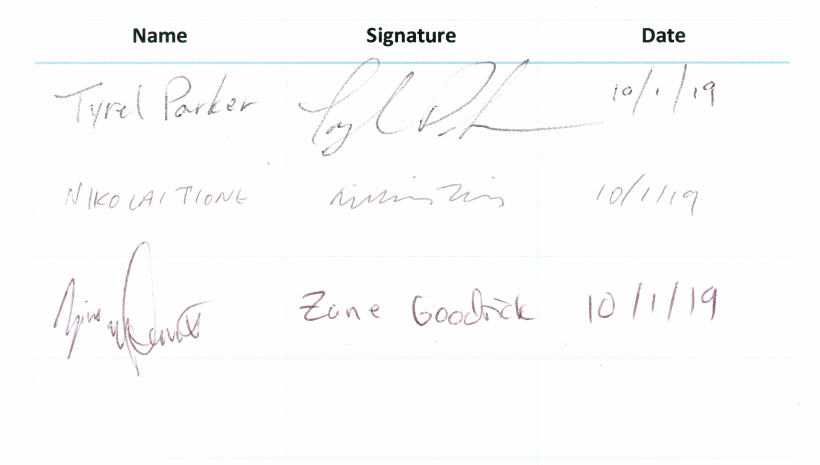 Name Signature Date
Tyrel Parker 10/1/19
NIKOLAI TIONE 10/1/19
Zane Goodrick 10/1/19